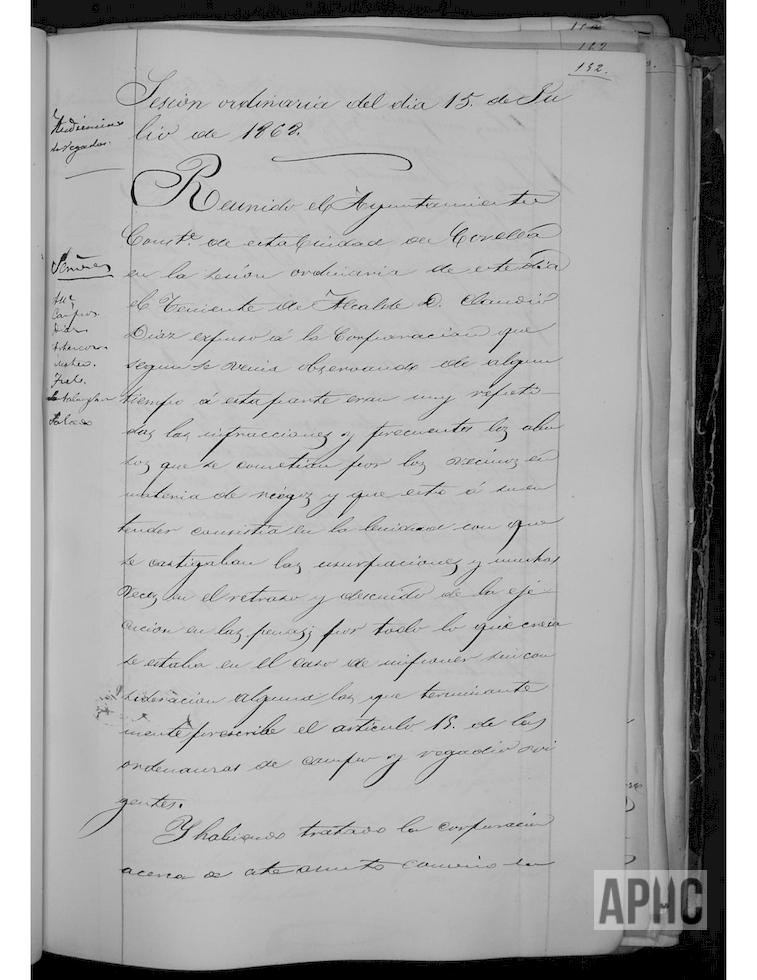 132.
Sesion ordinaria del dia 15. de Ju
lio de 1862.
de regadio.
Reunido el Ayuntamiento
Const.l de esta Ciudad de Corella
en la sesion ordinaria de este dia
el Teniente de Alcalde D. Claudio
Diaz expuso á la Corporacion que
segun se venia observando de algun
tiempo á esta parte eran muy repeti-
das las infracciones y frecuentes los abu
sos que se cometian por los vecinos en
materia de riegos y que esto á su en
tender consistia en la lenidad con que
se castigaban las usurpaciones y muchas
veces en el retraso y descuido de la eje
cucion en las penas; por todo lo que creia
se estaba en el caso de imponer sin con
sideracion alguna las que terminante
mente prescribe el articulo 15. de las
ordenanzas de campo y regadio vi
gentes.
Y habiendo tratado la corporacion
acerca de este asunto convino en
Señores
Campos.
Diaz
Salcedo
APHC